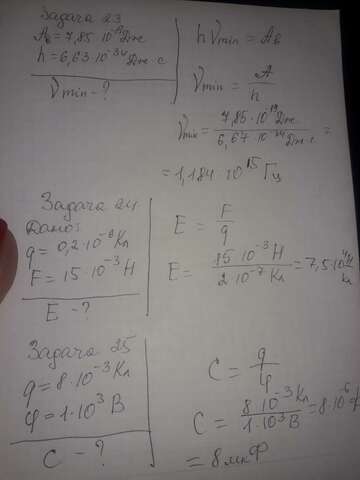 Задача 23
Aв = 7,85·10⁻¹⁹ Дж
h = 6,63·10⁻³⁴ Дж·с
νmin - ?
hνmin = Aв
νmin = A/h
νmin = 7,85·10⁻¹⁹Дж / 6,67·10⁻³⁴ Дж·с =
= 1,184·10¹⁵ Гц
Задача 24
Дано:
q = 0,2·10⁻⁶ Кл
F = 15·10⁻³ Н
E - ?
E = F/q
E = 15·10⁻³ Н / 2·10⁻⁷ Кл = 7,5·10⁴ Н/Кл
Задача 25
q = 8·10⁻³ Кл
φ = 1·10³ В
C - ?
C = q/φ
C = 8·10⁻³ Кл / 1·10³ В = 8·10⁻⁶ Ф
= 8 мкФ